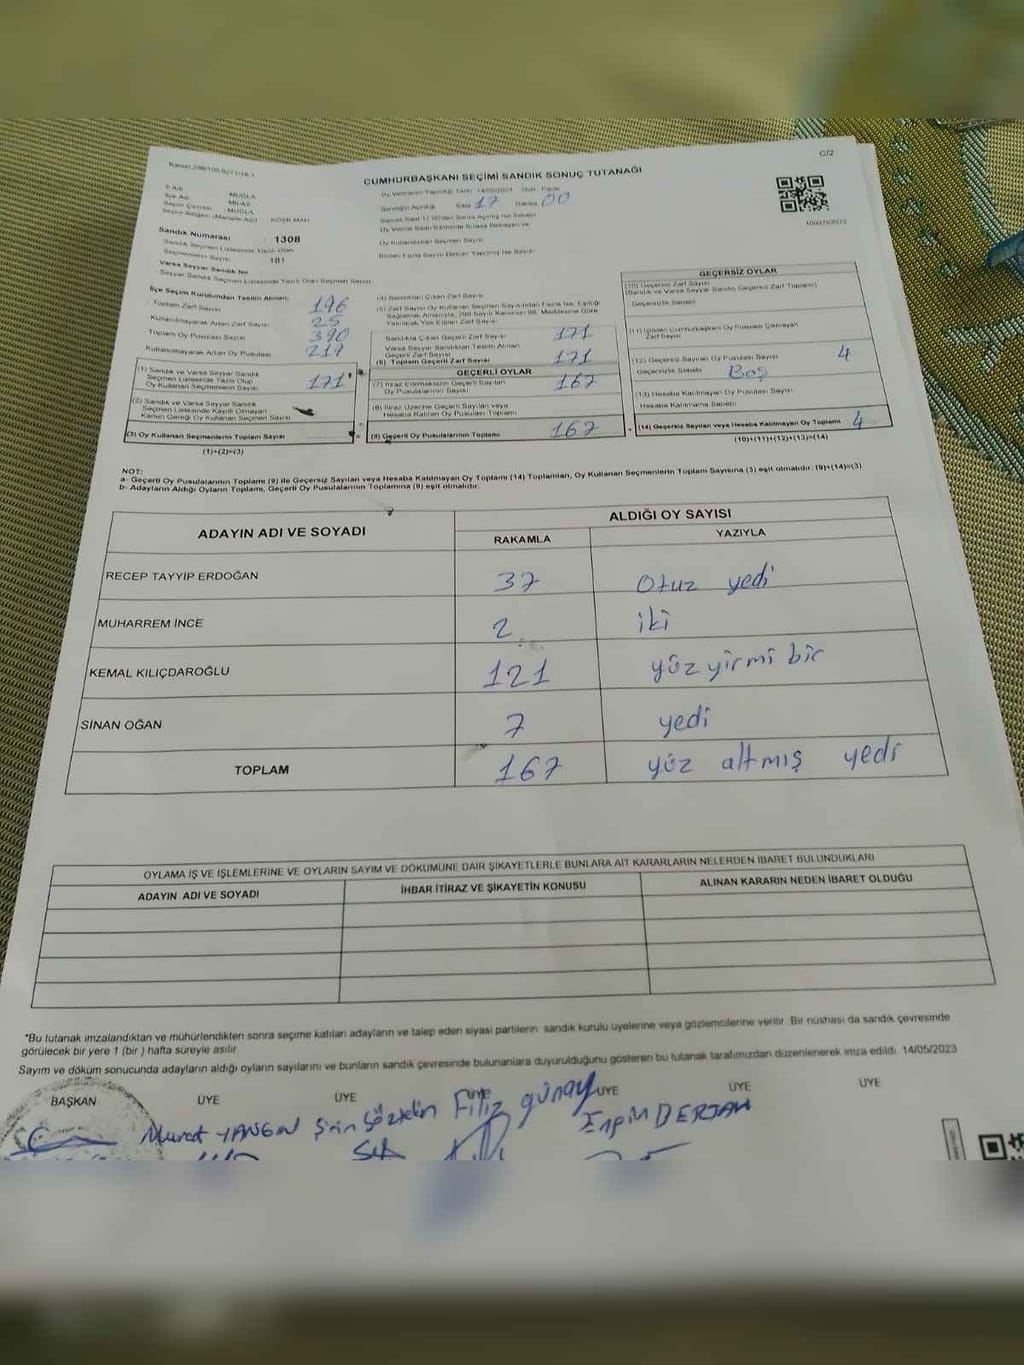 C/2
CUMHURBAŞKANI SEÇİMİ SANDIK SONUÇ TUTANAĞI
İl Adı MUĞLA
İlçe Adı MİLAS
Seçim Çevresi MUĞLA
Oy Vermenin Yapıldığı Tarih 14/05/2023 Gün Pazar
Saat 17 Dakika 00
Sandık Numarası 1308
Sandık Seçmen Listesinde Yazılı Olan
Seçmenlerin Sayısı 181
Varsa Seyyar Sandık No
Seyyar Sandık Seçmen Listesinde Yazılı Olan Seçmen Sayısı
Oy Kullandırılan Seçmen Sayısı
İlçe Seçim Kurulundan Teslim Alınan;
Toplam Zarf Sayısı 196
Kullanılmayarak Artan Zarf Sayısı 25
Toplam Oy Pusulası Sayısı 390
Kullanılmayarak Artan Oy Pusulası 219
(1) Sandık ve Varsa Seyyar Sandık
Seçmen Listesinde Yazılı Olup
Oy Kullanan Seçmenlerin Sayısı 171
(2) Sandık ve Varsa Seyyar Sandık
Seçmen Listesinde Kayıtlı Olmayan
Kanun Gereği Oy Kullanan Seçmen Sayısı
(3) Oy Kullanan Seçmenlerin Toplam Sayısı
(1)+(2)=(3)
(4) Sandıktan Çıkan Zarf Sayısı
Sandıkta Çıkan Geçerli Zarf Sayısı 171
Varsa Seyyar Sandıktan Teslim Alınan
Geçerli Zarf Sayısı
(6) Toplam Geçerli Zarf Sayısı 171
GEÇERLİ OYLAR
(7) İtiraz Edilmeksizin Geçerli Sayılan
Oy Pusulalarının Sayısı 167
(8) İtiraz Üzerine Geçerli Sayılan veya
Hesaba Katılan Oy Pusulası Toplamı
(9) Geçerli Oy Pusulalarının Toplamı 167
GEÇERSİZ OYLAR
(10) Geçersiz Zarf Sayısı
(Sandık ve Varsa Seyyar Sandık Geçersiz Zarf Toplamı)
Geçersizlik Sebebi
(11) İçinden Cumhurbaşkanı Oy Pusulası Çıkmayan
Zarf Sayısı
(12) Geçersiz Sayılan Oy Pusulası Sayısı 4
Geçersizlik Sebebi Boş
(13) Hesaba Katılmayan Oy Pusulası Sayısı
Hesaba Katılmama Sebebi
(14) Geçersiz Sayılan veya Hesaba Katılmayan Oy Toplamı 4
(10)+(11)+(12)+(13)=(14)
NOT:
a- Geçerli Oy Pusulalarının Toplamı (9) ile Geçersiz Sayılan veya Hesaba Katılmayan Oy Toplamı (14) Toplamları, Oy Kullanan Seçmenlerin Toplam Sayısına (3) eşit olmalıdır. (9)+(14)=(3)
b- Adayların Aldığı Oyların Toplamı, Geçerli Oy Pusulalarının Toplamına (9) eşit olmalıdır.
ADAYIN ADI VE SOYADI
ALDIĞI OY SAYISI
RAKAMLA YAZIYLA
RECEP TAYYİP ERDOĞAN 37 Otuz yedi
MUHARREM İNCE 2 iki
KEMAL KILIÇDAROĞLU 121 yüz yirmi bir
SİNAN OĞAN 7 yedi
TOPLAM 167 yüz altmış yedi
OYLAMA İŞ VE İŞLEMLERİNE VE OYLARIN SAYIM VE DÖKÜMÜNE DAİR ŞİKAYETLERLE BUNLARA AİT KARARLARIN NELERDEN İBARET BULUNDUKLARI
ADAYIN ADI VE SOYADI İHBAR İTİRAZ VE ŞİKAYETİN KONUSU ALINAN KARARIN NEDEN İBARET OLDUĞU
*Bu tutanak imzalandıktan ve mühürlendikten sonra seçime katılan adayların ve talep eden siyasi partilerin sandık kurulu üyelerine veya gözlemcilerine verilir. Bir nüshası da sandık çevresinde
görülecek bir yere 1 (bir) hafta süreyle asılır.
Sayım ve döküm sonucunda adayların aldığı oyların sayılarını ve bunların sandık çevresinde bulunanlara duyurulduğunu gösteren bu tutanak tarafımızdan düzenlenerek imza edildi. 14/05/2023
BAŞKAN ÜYE ÜYE ÜYE ÜYE ÜYE ÜYE
Murat YANGIN Filiz günay